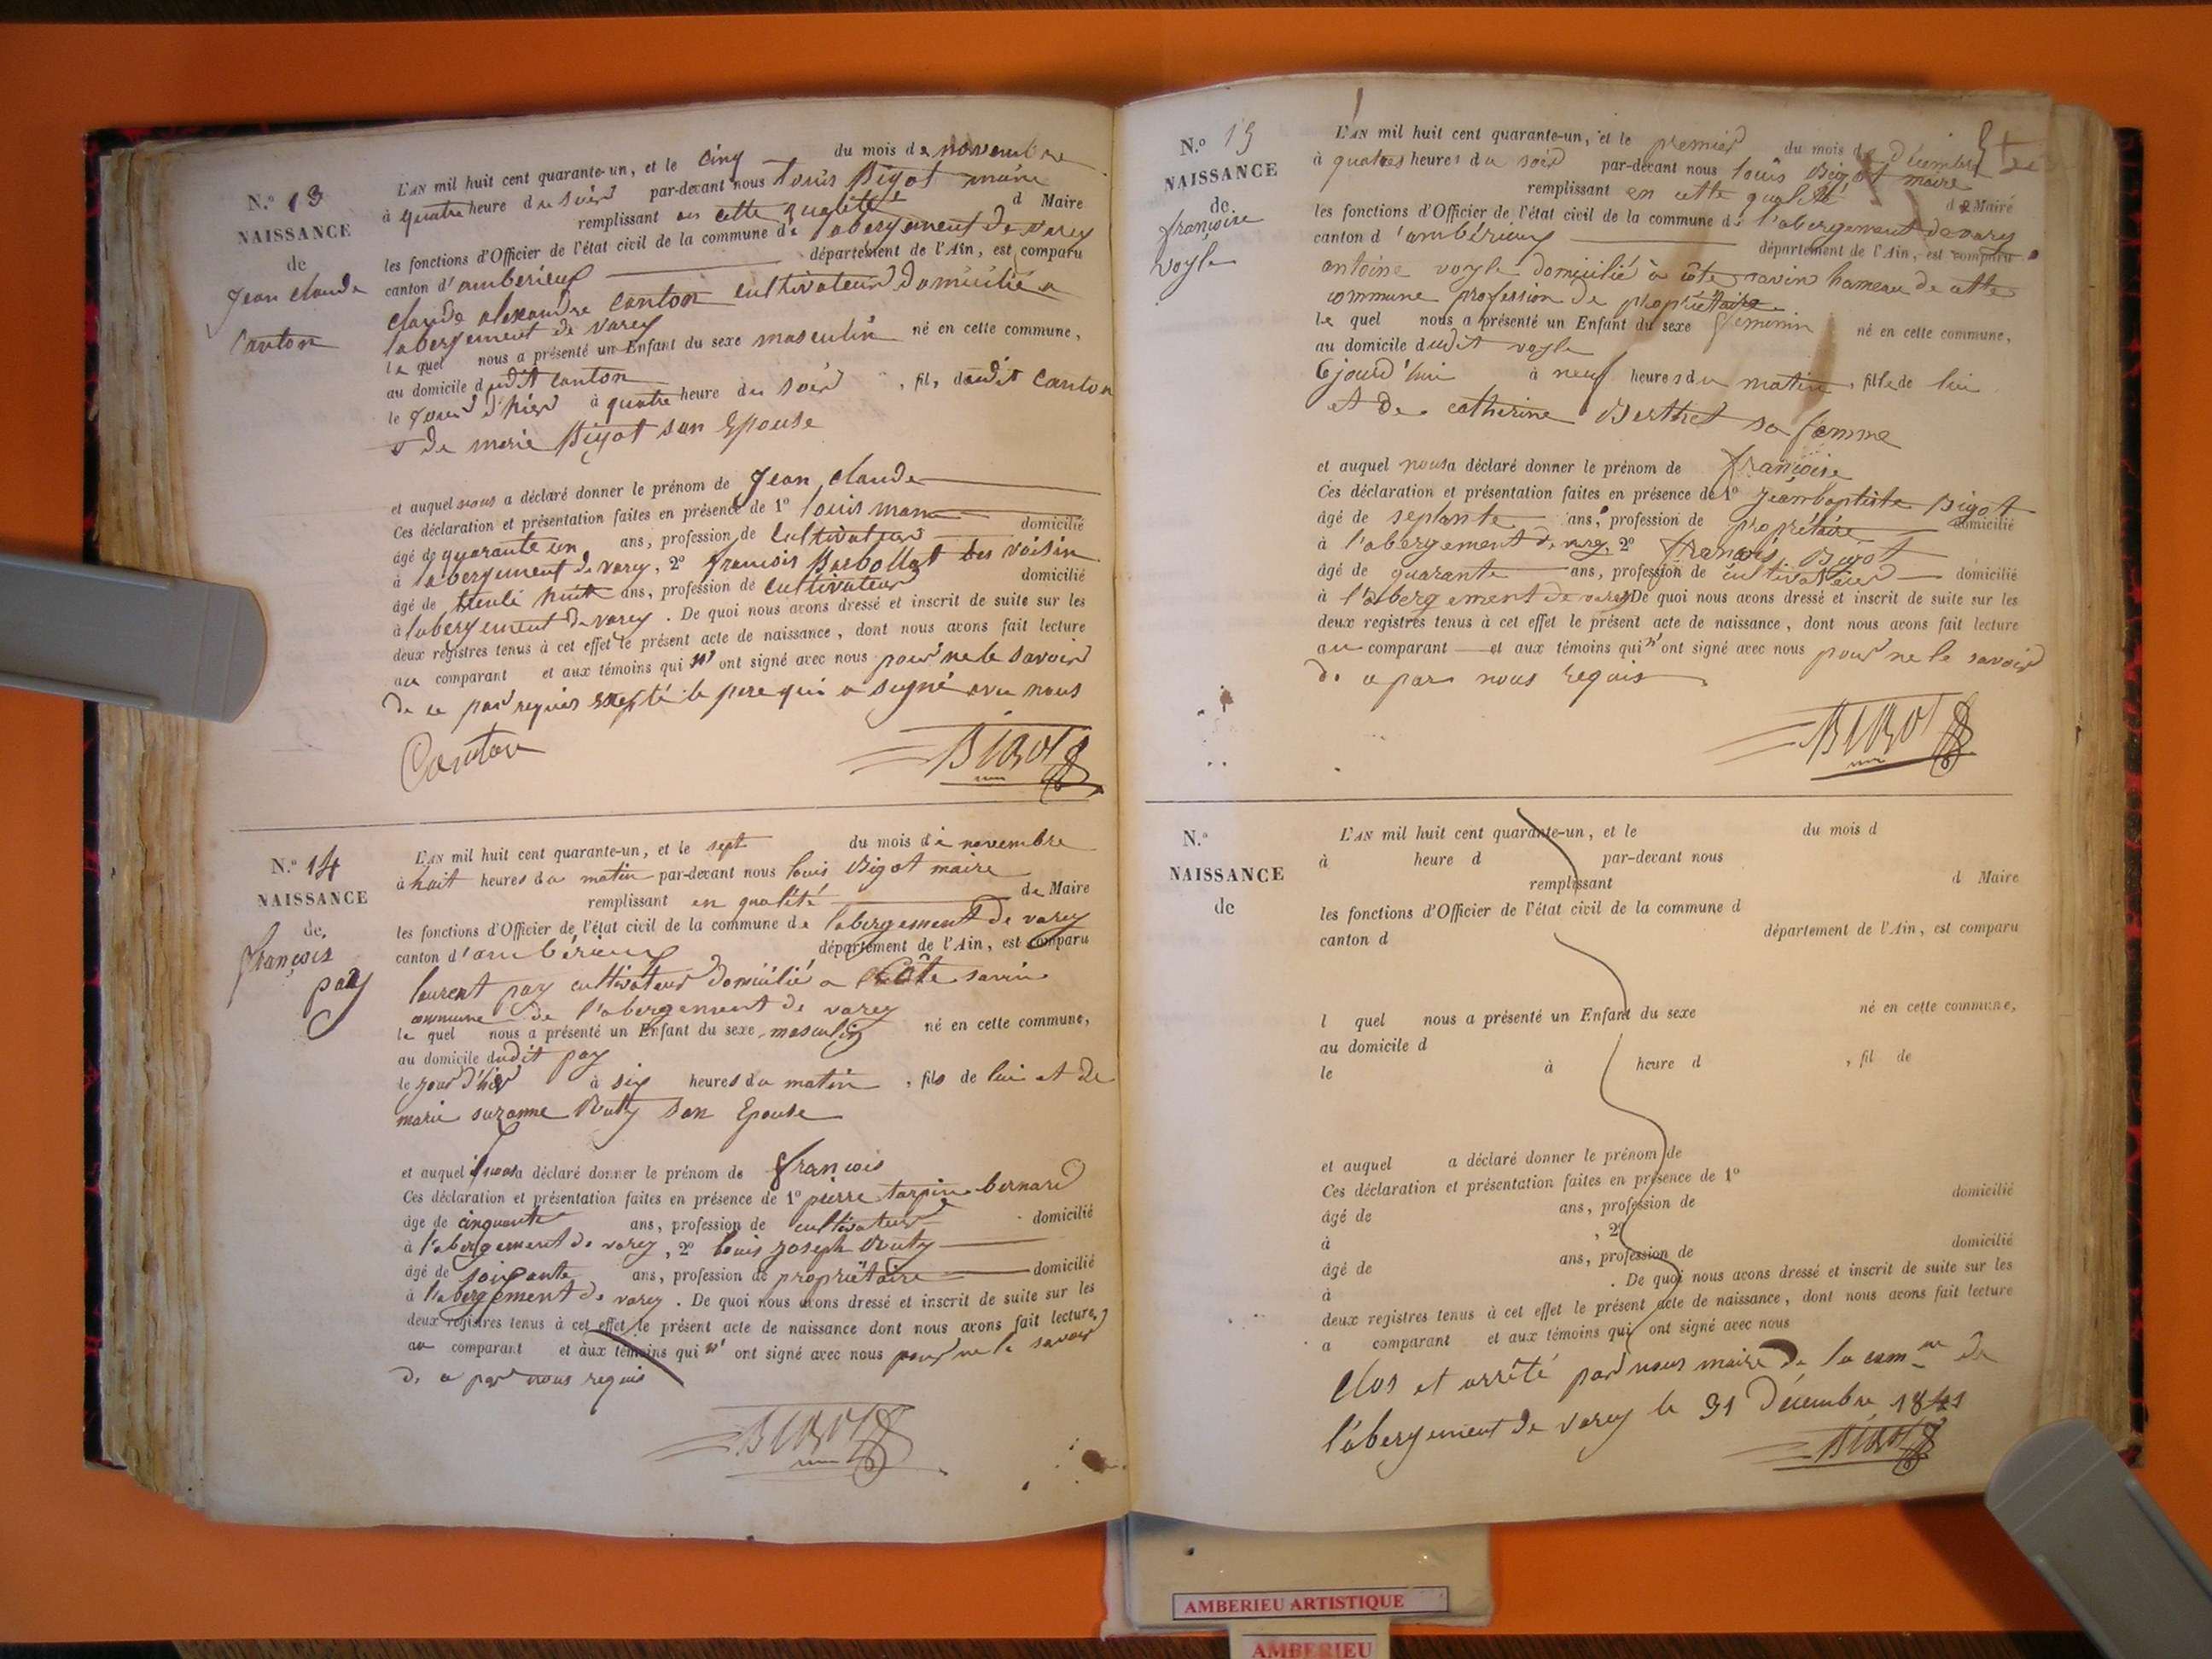 N.º 13
NAISSANCE
de
Jean Claude
Canton
L'AN mil huit cent quarante-un, et le cinq du mois de novembre
à quatre heure du soir par-devant nous Louis Bigot maire
remplissant en cette qualité d Maire
les fonctions d'Officier de l'état civil de la commune de l'abergement de varey
canton d'amberieux département de l'Ain, est comparu
Claude alexandre Canton cultivateur Domicilié a
labergement de varey
le quel nous a présenté un Enfant du sexe masculin né en cette commune,
au domicile dudit Canton
le jour d'hier à quatre heure du soir , fil, dudit Canton
et de marie Bigot son Epouse
et auquel nous a déclaré donner le prénom de Jean Claude
Ces déclaration et présentation faites en présence de 1º louis
âgé de quarante un ans, profession de cultivateur domicilié
à labergement de varey, 2º françois
âgé de trente huit ans, profession de cultivateur domicilié
à labergement de varey. De quoi nous avons dressé et inscrit de suite sur les
deux registres tenus à cet effet le présent acte de naissance, dont nous avons fait lecture
au comparant et aux témoins qui n' ont signé avec nous pour ne le savoir
de ce par requis excepté le pere qui a signé avec nous
Canton BIGOT
N.º 14
NAISSANCE
de
françois
pay
L'AN mil huit cent quarante-un, et le sept du mois de novembre
à huit heures du matin par-devant nous louis Bigot maire
remplissant en qualité de Maire
les fonctions d'Officier de l'état civil de la commune de labergement de varey
canton d'ambérieux département de l'Ain, est comparu
laurent pay cultivateur domicilié a Côte savin
commune de l'abergement de varey
le quel nous a présenté un Enfant du sexe masculin né en cette commune,
au domicile dudit pay
le jour d'hier à six heures du matin , fils de lui et de
marie suzanne Ruty son Epouse
et auquel il nous a déclaré donner le prénom de françois
Ces déclaration et présentation faites en présence de 1º pierre tarpin bernard
âgé de cinquante ans, profession de cultivateur domicilié
à l'abergement de varey, 2º louis joseph Ruty
âgé de soixante ans, profession de propriétaire domicilié
à l'abergement de varey. De quoi nous avons dressé et inscrit de suite sur les
deux registres tenus à cet effet le présent acte de naissance dont nous avons fait lecture,
au comparant et aux témoins qui n' ont signé avec nous pour ne le savoir
de ce par nous requis
BIGOT
N.º 15
NAISSANCE
de
françoise
vogle
L'AN mil huit cent quarante-un, et le premier du mois de décembre
à quatres heures du soir par-devant nous louis Bigot maire
remplissant en cette qualité de Maire
les fonctions d'Officier de l'état civil de la commune de l'abergement de varey
canton d'ambérieux département de l'Ain, est comparu
antoine vogle domicilié à côte savin hameau de cette
commune profession de propriétaire
le quel nous a présenté un Enfant du sexe féminin né en cette commune,
au domicile dudit vogle
cejourd'hui à neuf heures du matin , fille de lui
et de catherine Berthet sa femme
et auquel nous a déclaré donner le prénom de françoise
Ces déclaration et présentation faites en présence de 1º jeanbaptiste Bigot
âgé de septante ans, profession de propriétaire domicilié
à l'abergement de varey, 2º françois Bigot
âgé de quarante ans, profession de cultivateur domicilié
à l'abergement de varey De quoi nous avons dressé et inscrit de suite sur les
deux registres tenus à cet effet le présent acte de naissance, dont nous avons fait lecture
au comparant et aux témoins qui n' ont signé avec nous pour ne le savoir
de ce par nous requis
BIGOT
N.º
NAISSANCE
de
L'AN mil huit cent quarante-un, et le du mois d
à heure d par-devant nous
remplissant d Maire
les fonctions d'Officier de l'état civil de la commune d
canton d département de l'Ain, est comparu
l quel nous a présenté un Enfant du sexe né en cette commune,
au domicile d
le à heure d , fil de
et auquel a déclaré donner le prénom de
Ces déclaration et présentation faites en présence de 1º
âgé de ans, profession de domicilié
à , 2º
âgé de ans, profession de domicilié
à . De quoi nous avons dressé et inscrit de suite sur les
deux registres tenus à cet effet le présent acte de naissance, dont nous avons fait lecture
a comparant et aux témoins qui ont signé avec nous
Clos et arrêté par nous maire de la com.ne de
l'abergement de varey le 31 Décembre 1841
BIGOT
AMBERIEU ARTISTIQUE
AMBERIEU